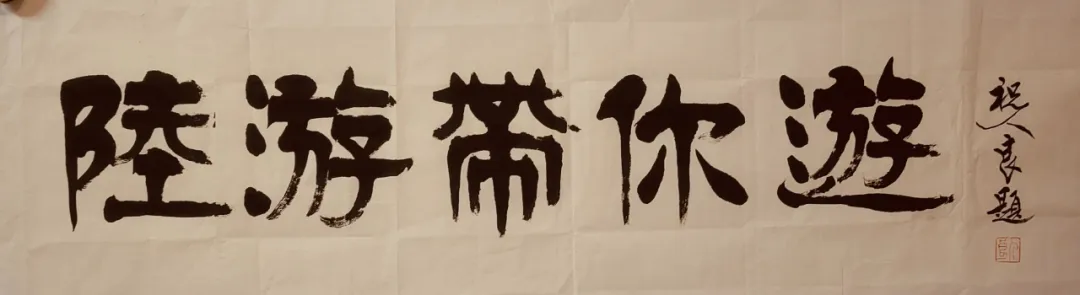 陸游帶你遊
祝良題